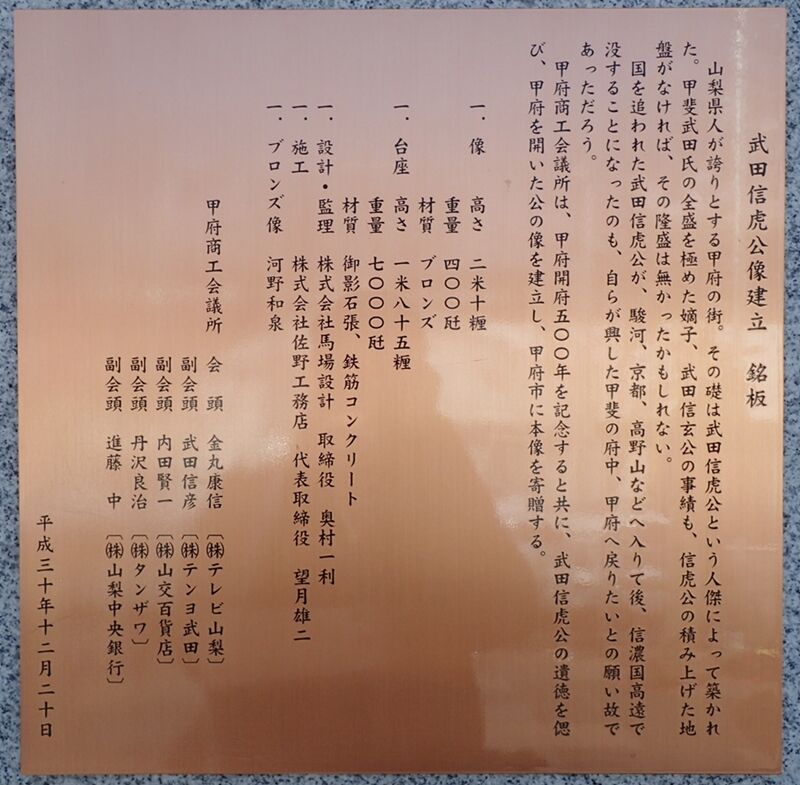 武田信虎公像建立　銘板
山梨県人が誇りとする甲府の街。その礎は武田信虎公という人傑によって築かれ
た。甲斐武田氏の全盛を極めた嫡子、武田信玄公の事績も、信虎公の積み上げた地
盤がなければ、その隆盛は無かったかもしれない。
国を追われた武田信虎公が、駿河、京都、高野山などへ入りて後、信濃国高遠で
没することになったのも、自らが興した甲斐の府中、甲府へ戻りたいとの願い故で
あっただろう。
甲府商工会議所は、甲府開府五〇〇年を記念すると共に、武田信虎公の遺徳を偲
び、甲府を開いた公の像を建立し、甲府市に本像を寄贈する。
一．像　高さ　二米十糎
重量　四〇〇瓩
材質　ブロンズ
一．台座　高さ　一米八十五糎
重量　七〇〇〇瓩
材質　御影石張、鉄筋コンクリート
一．設計・監理　株式会社馬場設計　取締役　奥村一利
一．施工　株式会社佐野工務店　代表取締役　望月雄二
一．ブロンズ像　河野和泉
甲府商工会議所　会　頭　金丸康信　〔㈱テレビ山梨〕
副会頭　武田信彦　〔㈱テンヨ武田〕
副会頭　内田賢一　〔㈱山交百貨店〕
副会頭　丹沢良治　〔㈱タンザワ〕
副会頭　進藤　中　〔㈱山梨中央銀行〕
平成三十年十二月二十日